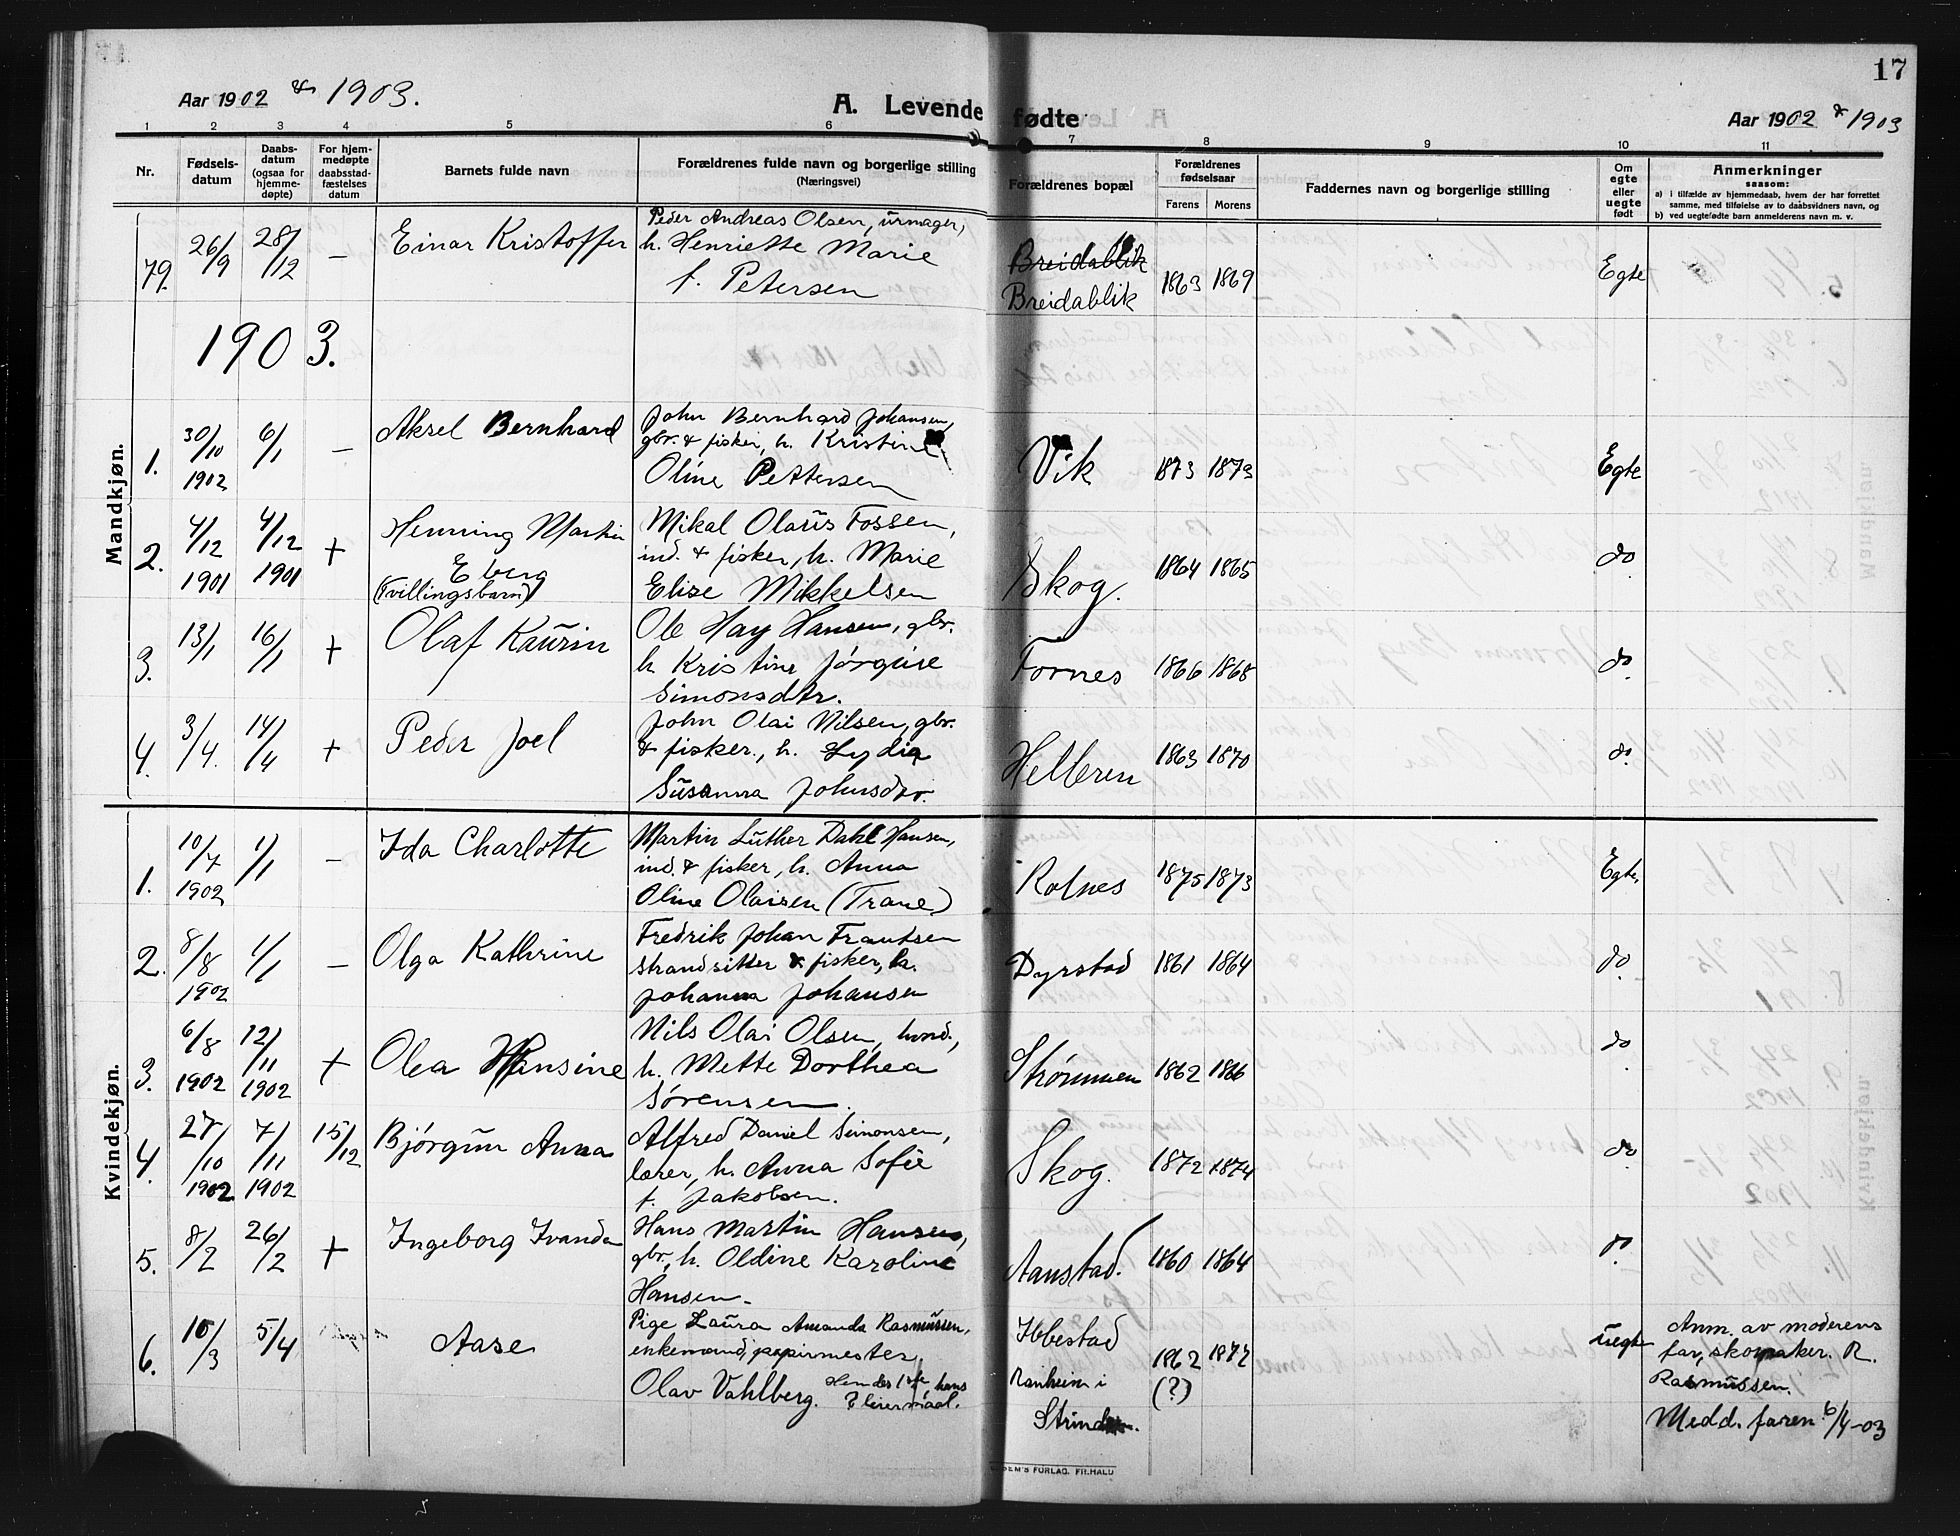 17
Aar 1902 & 1903.
A. Levende fødte
Aar 1902 & 1903
1 2 3 4 5 6 7 8 9 10 11
Nr.
Fødsels-
datum
Daabs-
datum
(ogsaa for
hjemme-
døpte)
For hjem-
medøpte
daabsstad-
fæstelses
datum
Barnets fulde navn
Forældrenes fulde navn og borgerlige stilling
(Næringsvei)
Forældrenes bopæl
Forældrenes
fødselsaar
Farens Morens
Faddernes navn og borgerlige stilling
Om
egte
eller
uegte
født
Anmerkninger
saasom:
a) i tilfælde av hjemmedaab, hvem der har forrettet
samme, med tilføielse av to daabsvidners navn, og
b) ved uegtefødte barn anmelderens navn m. v.
79. 26/9 28/12 — Einar Kristoffer
Peder Andreas Olsen, urmager,
h. Henriette Marie
f. Petersen
Breidablik
Breidablik 1863 1869 Egte
1903.
Mandkjøn.
1. 30/10 1902 6/1 — Aksel Bernhard
John Bernhard Johansen,
gbr. & fisker, h. Kristine
Oline Pettersen
Vik 1873 1873 Egte
2. 4/12 1901 4/12 1901 + Henning Martin
Eberg
(Tvillingsbarn)
Mikal Olaus Fossen,
ind. & fisker, h. Marie
Elise Mikkelsen
Skog. 1864 1865 do
3. 13/1 16/1 + Olaf Kaurin
Ole Hay Hansen, gbr.
h. Kristine Jørgine
Simonsdtr.
Fornes 1866 1868 do
4. 3/4. 14/4 + Peder Joel
John Olai Nilsen, gbr.
& fisker., h. Lydia
Susanna Johnsdtr.
Helleren 1863 1870 do
Kvindekjøn.
1. 10/7 1902 1/1 — Ida Charlotte
Martin Luther Dahl Hansen,
ind. & fisker, h. Anna
Oline Olaisen (Trane)
Rolnes 1875 1873 Egte
2. 8/8 1902 1/1 — Olga Kathrine
Fredrik Johan Frantsen
strandsitter & fisker, h.
Johanna Johansen
Dyrstad 1861 1864 do
3. 6/8 1902 12/11 1902 + Olea Hansine
Nils Olai Olsen, hmd.,
h. Mette Dorthea
Sørensen.
Strømmen 1862 1866 do
4. 27/10 1902 7/11 1902 15/12 Bjørgun Anna
Alfred Daniel Simonsen,
lærer, h. Anna Sofie
f. Jakobsen.
Skog. 1872 1874 do
5. 8/2 26/2 + Ingeborg Ivanda
Hans Martin Hansen,
gbr., h. Oldine Karoline
Hansen.
Aanstad. 1860 1864 do
6. 10/3 5/4 Aase
Pige Laura Amanda Rasmussen,
enkemand, papirmester
Olav Vahlberg. Hendes 1ste, hans
2 leiermaal.
Ibbestad
Ranheim i
Strinden.
1862 (?) 1877 uegte
Anm. av moderens
far, skomaker. R.
Rasmussen.
Medd. faren 6/4-03
SEM'S FORLAG, FR.HALD